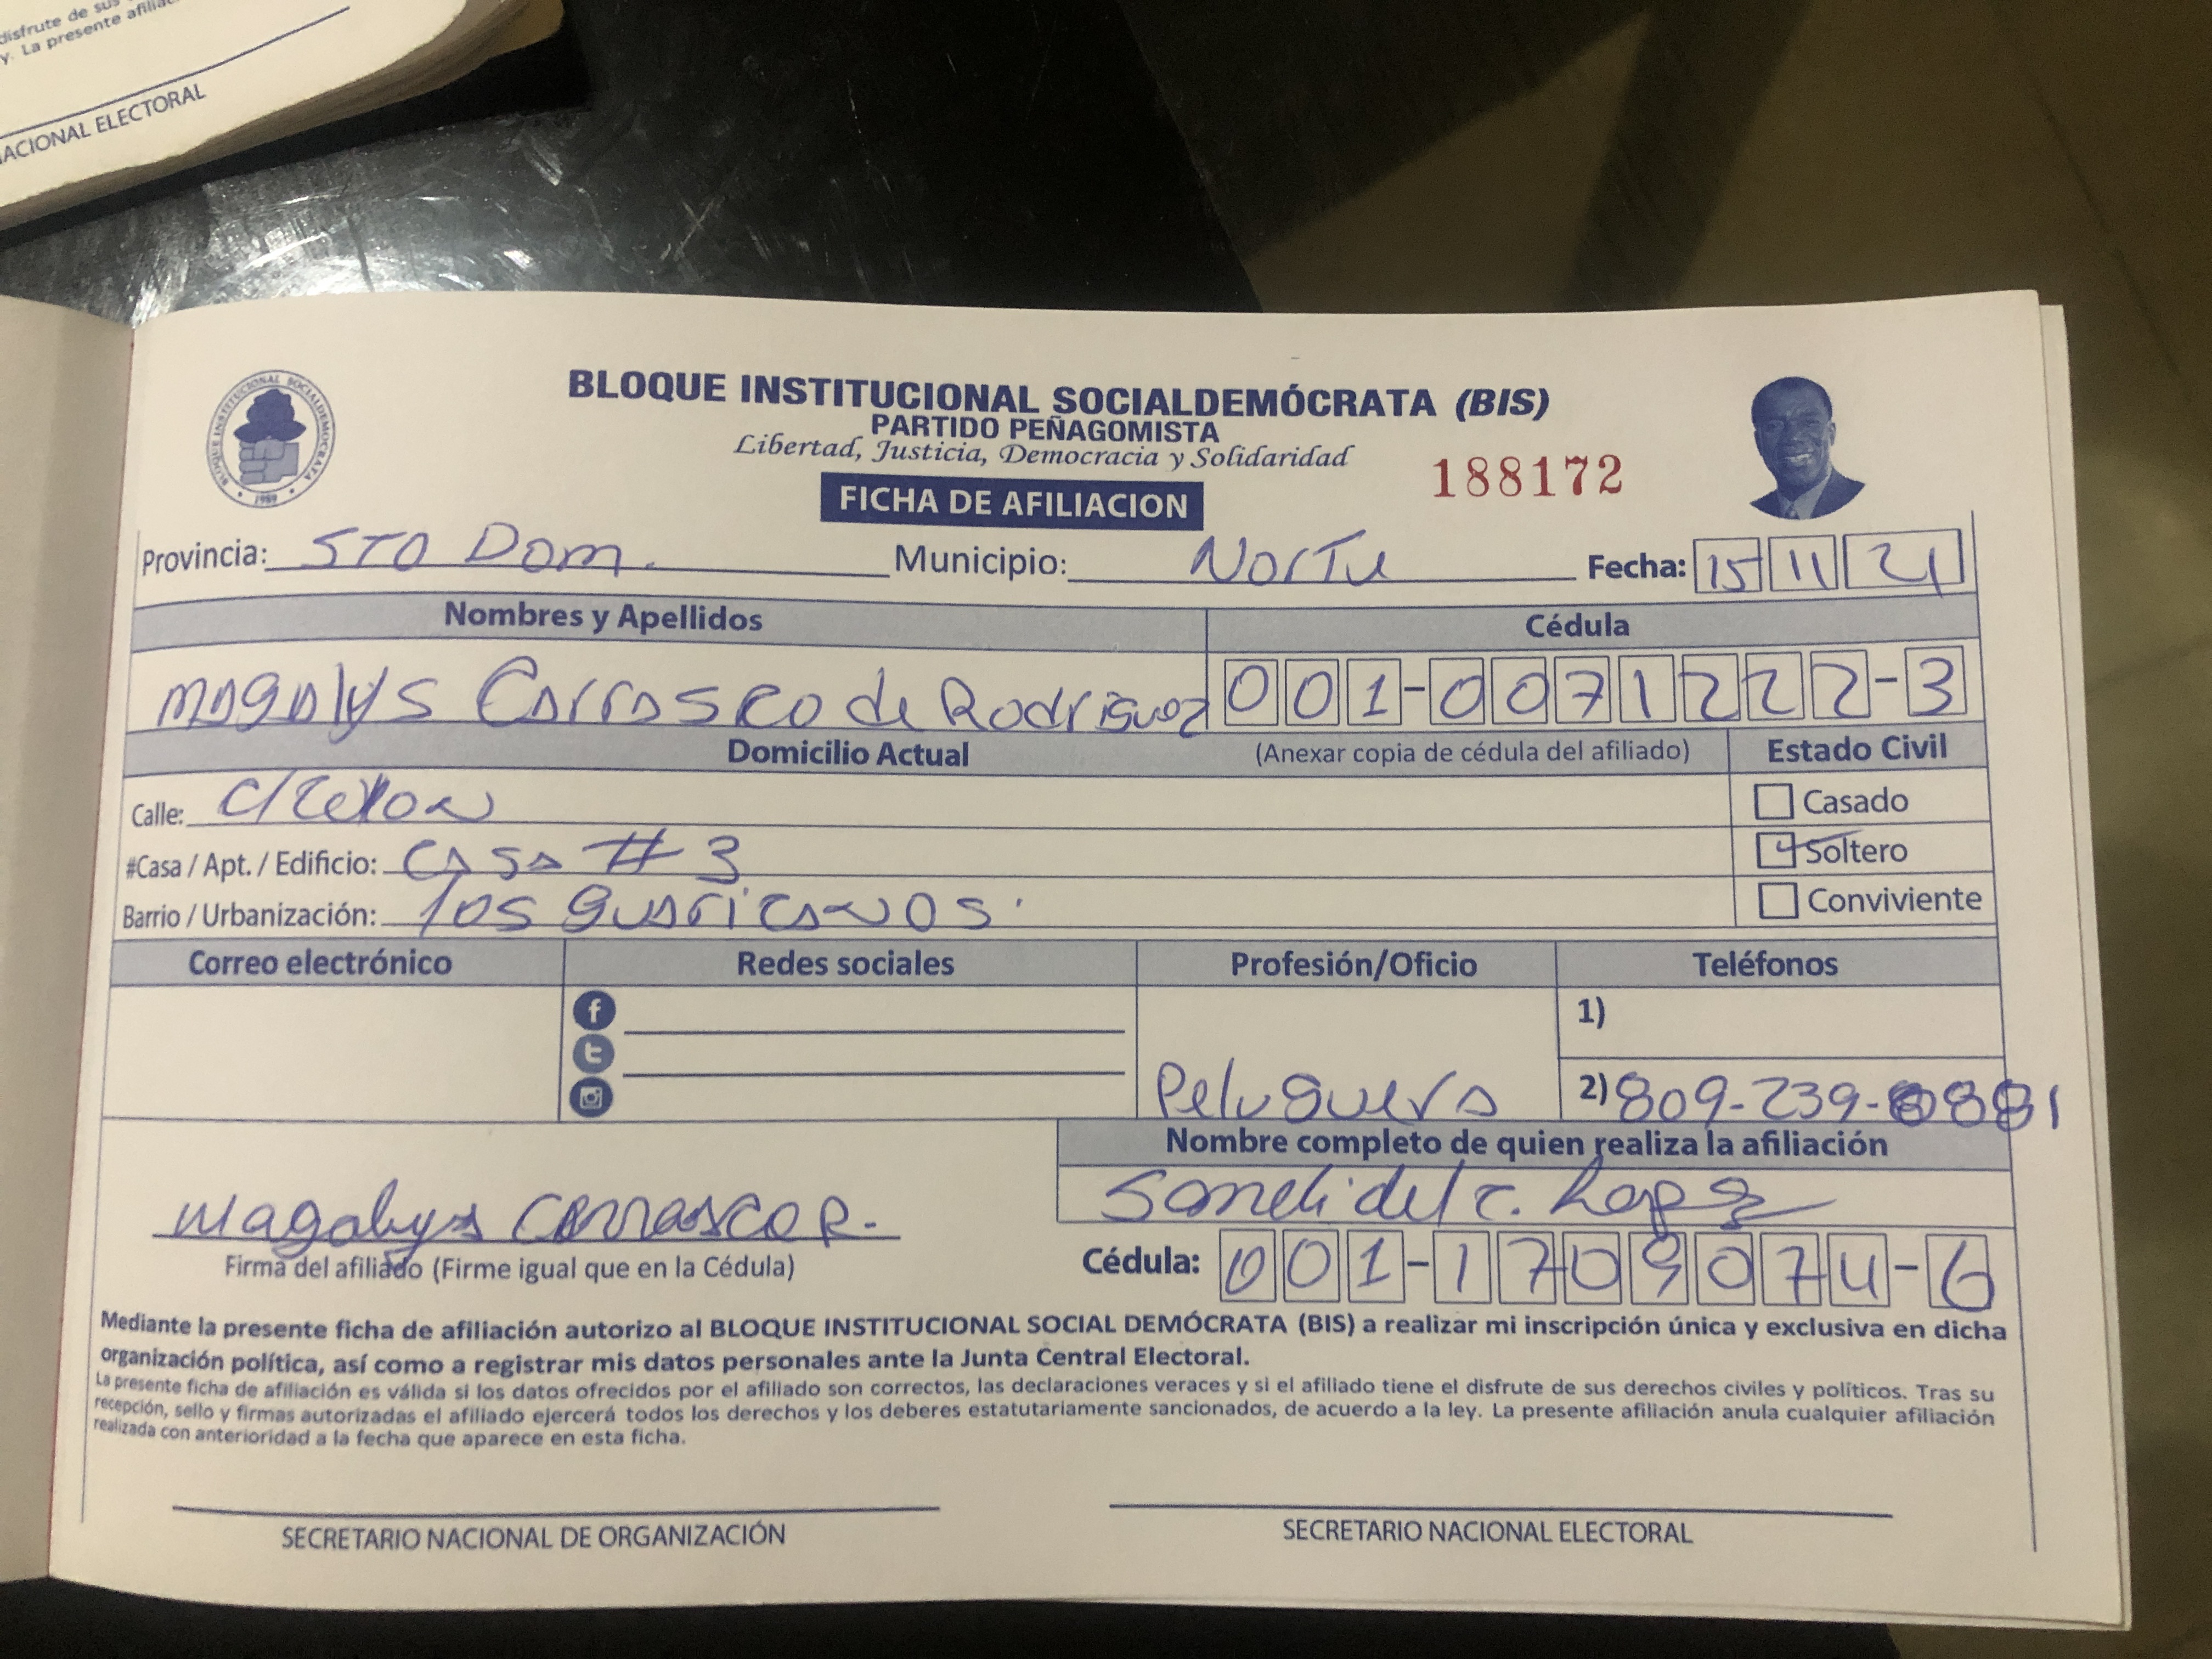 disfrute de sus
y. La presente afiliac
NACIONAL ELECTORAL
BLOQUE INSTITUCIONAL SOCIALDEMOCRATA
1989
BLOQUE INSTITUCIONAL SOCIALDEMÓCRATA (BIS)
PARTIDO PEÑAGOMISTA
Libertad, Justicia, Democracia y Solidaridad
188172
FICHA DE AFILIACION
Provincia: STO Dom. Municipio: Norte Fecha: 15 11 21
Nombres y Apellidos Cédula
Magalys Carrasco de Rodriguez 001-0071222-3
Domicilio Actual (Anexar copia de cédula del afiliado) Estado Civil
Calle: C/
Casado
#Casa / Apt. / Edificio: Casa #3
Soltero
Barrio / Urbanización: los guaricanos.
Conviviente
Correo electrónico Redes sociales Profesión/Oficio Teléfonos
1)
Peluquera 2) 809-239-8881
Nombre completo de quien realiza la afiliación
del c. Lopez
Magalys Carrasco R.
Firma del afiliado (Firme igual que en la Cédula) Cédula: 001-1709074-6
Mediante la presente ficha de afiliación autorizo al BLOQUE INSTITUCIONAL SOCIAL DEMÓCRATA (BIS) a realizar mi inscripción única y exclusiva en dicha
organización política, así como a registrar mis datos personales ante la Junta Central Electoral.
La presente ficha de afiliación es válida si los datos ofrecidos por el afiliado son correctos, las declaraciones veraces y si el afiliado tiene el disfrute de sus derechos civiles y políticos. Tras su
recepción, sello y firmas autorizadas el afiliado ejercerá todos los derechos y los deberes estatutariamente sancionados, de acuerdo a la ley. La presente afiliación anula cualquier afiliación
realizada con anterioridad a la fecha que aparece en esta ficha.
SECRETARIO NACIONAL DE ORGANIZACIÓN SECRETARIO NACIONAL ELECTORAL